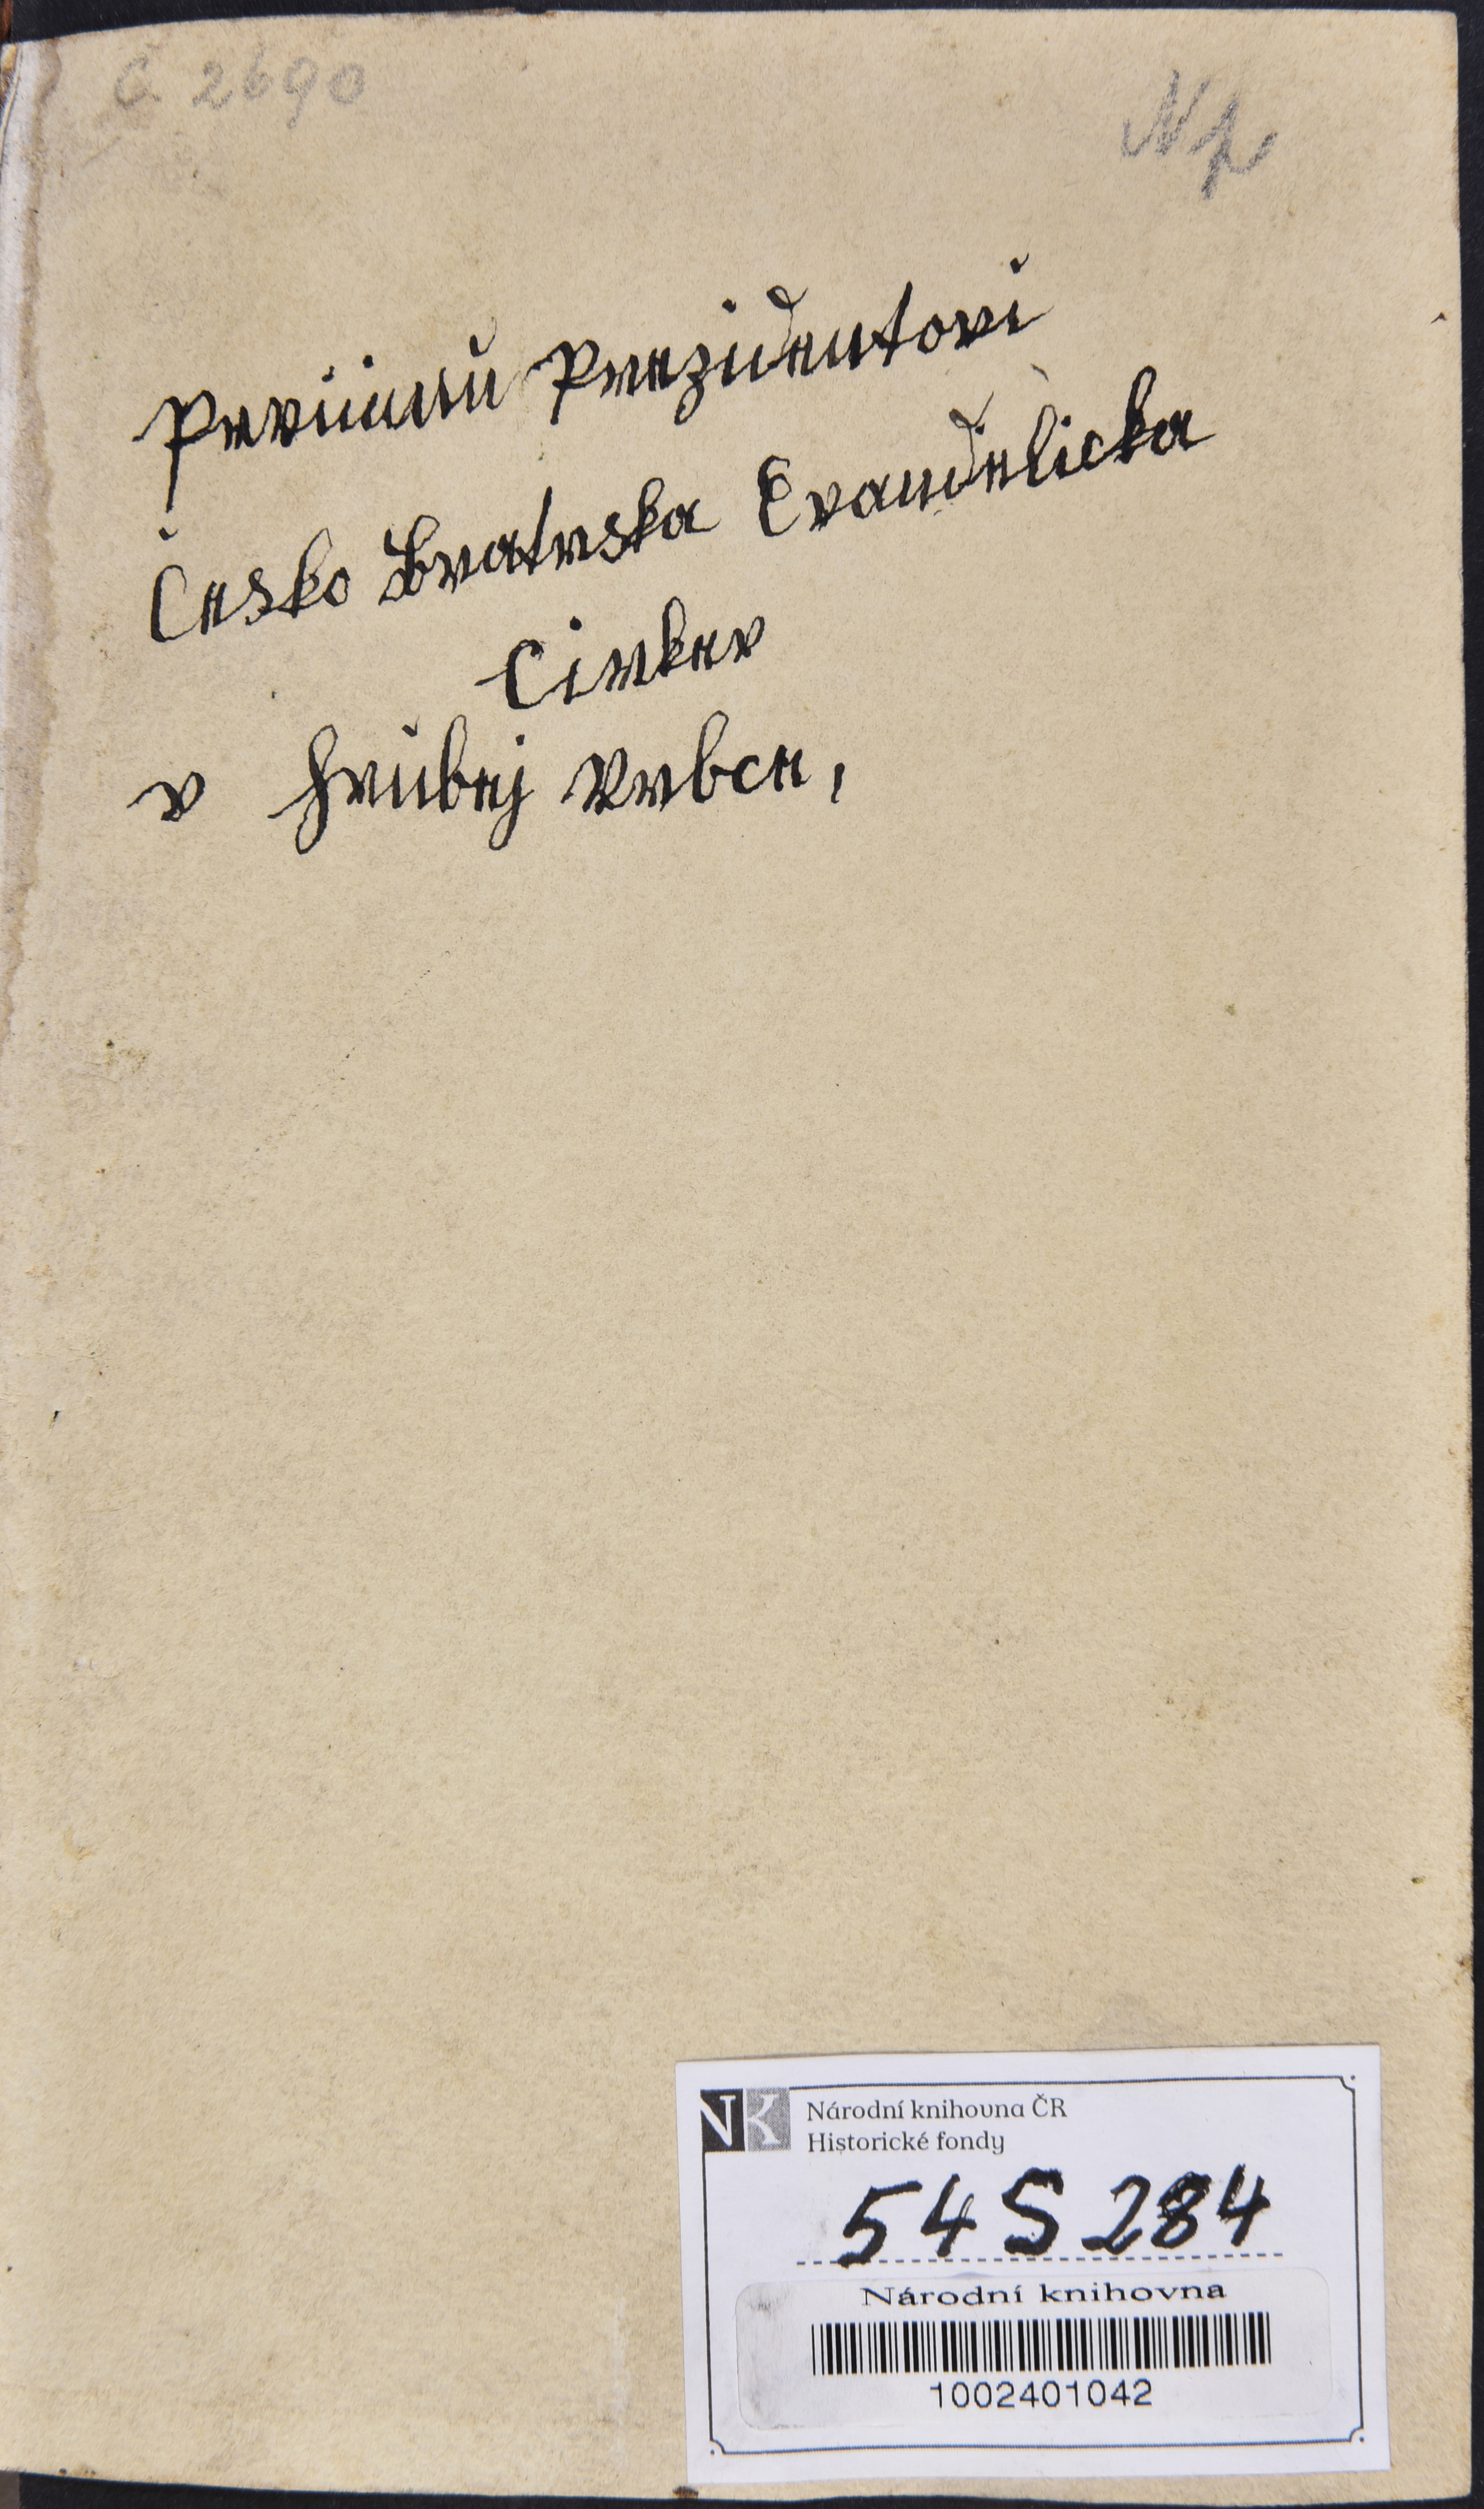 Č 2690
Np
Prvnimu Prezidentovi
Česko bratrska Evandelicka
Cirkev
v hrubej Vrbce,
NK
Národní knihovna ČR
Historické fondy
54 S 284
Národní knihovna
1002401042